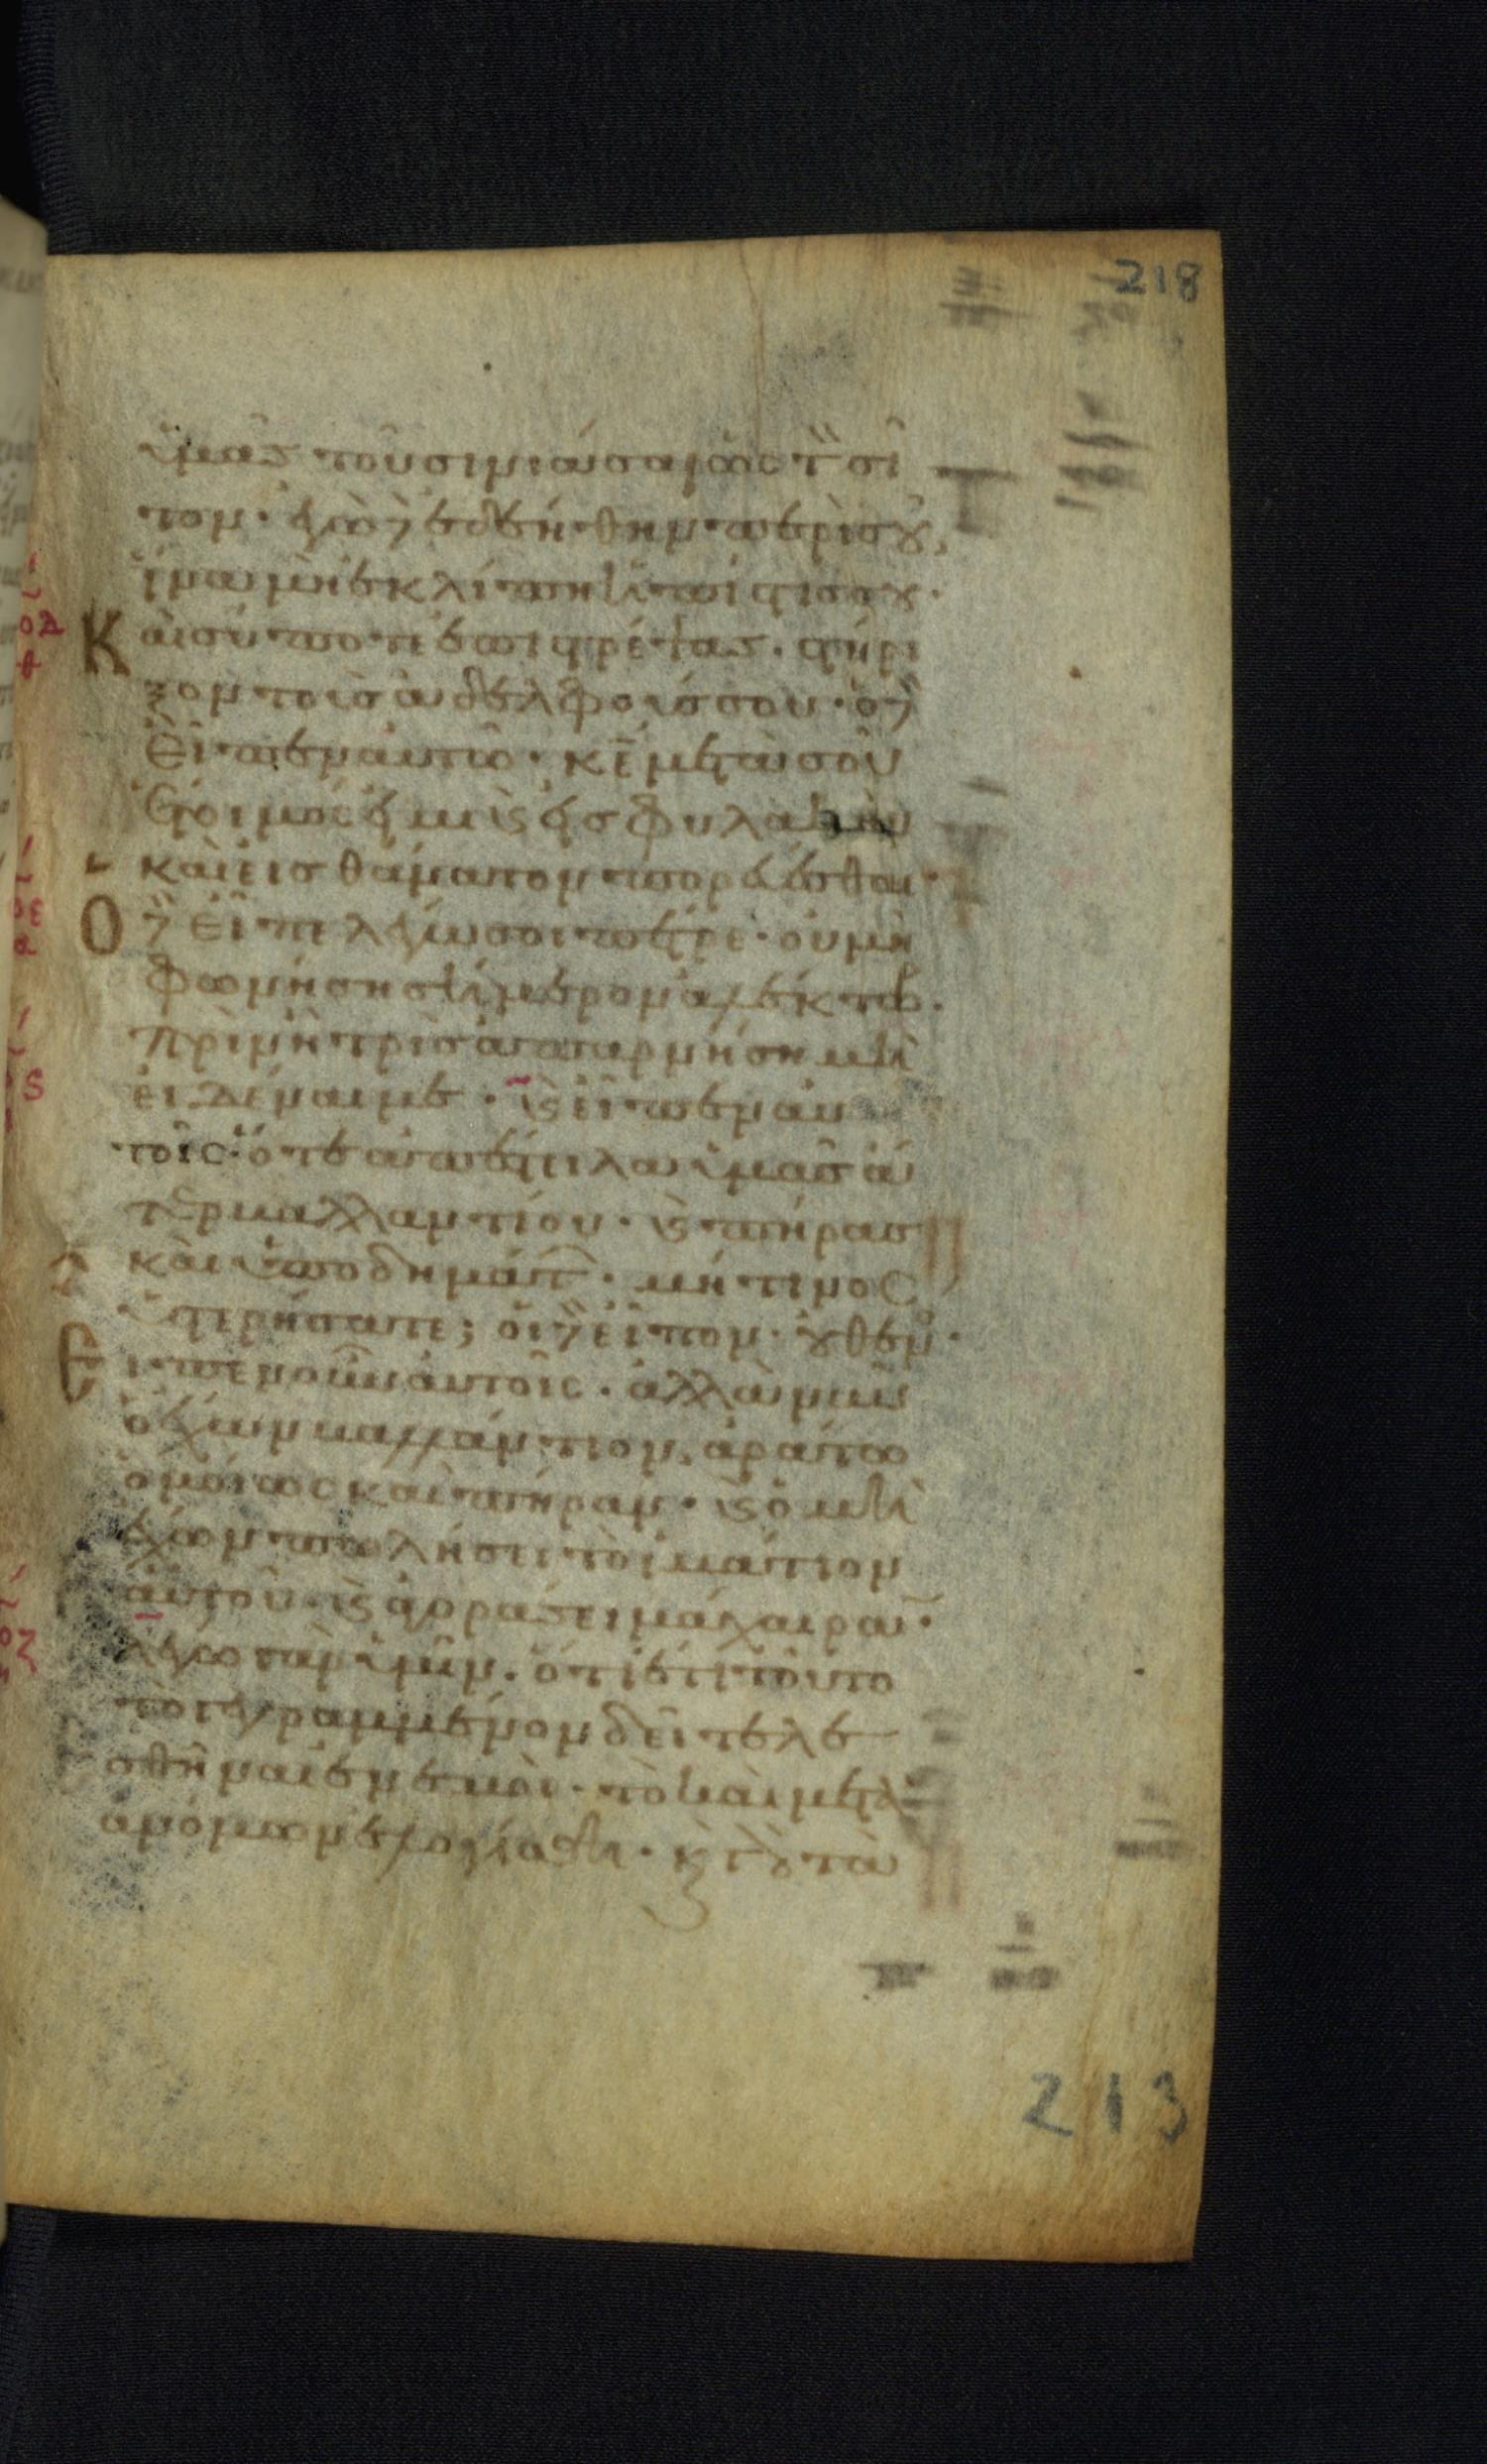 218
ὑμᾶς τοῦ σινιάσαι ὡς τ̈ σῖ
τον· ἐγὼ δ̀ ἐδεήθην περὶ σȣ͂,
ἵνα μὴ ἐκλίπη ἡ πίστις σȣ·
Καὶ σύ ποτε ἐπιστρέψας· στήρι
ξον τοὺς ἀδελφούς σου· ὁ δ̀
εἶπεν αὐτῶ· κ̅ε̅ μετὰ σοῦ
ἕτοιμός εἰμι ϗ εἰς φυλακὴν
καὶ εἰς θάνατον πορεύεσθαι·
Ὁ δ̀ εἶπε λέγω σοι πέτρε· οὐ μὴ
φωνήση σήμερον ἀλέκτωρ·
πρὶν ἢ τρὶς ἀπαρνήση μὴ
εἰδέναι με· ϗ εἶπεν αὐ
τοῖς· ὅτε ἀπέστειλα ὑμᾶς ἄ
τερ βαλλαντίου· ϗ πήρας
καὶ ὑποδημάτ͂· μή τινος
ὑστερήσατε; οἱ δ̀ εἶπον· ȣ̓θενός·
Εἶπεν οὖν αὐτοῖς· ἀλλὰ νῦν
ὁ ἔχων βαλλάντιον, ἀράτω
ὁμοίως καὶ πήραν· ϗ ὁ μὴ
ἔχων πωλήσει τὸ ἱμάτιον
αὐτοῦ· ϗ ἀγοράσει μάχαιραν·
λέγω γὰρ ὑμῖν· ὅτι ἔτι τοῦτο
τὸ γεγραμμένον δεῖ τελε
σθῆναι ἐν ἐμοί· τὸ καὶ μετὰ
ἀνόμων ἐλογίσθη· ϗ γ̀ τὰ
213